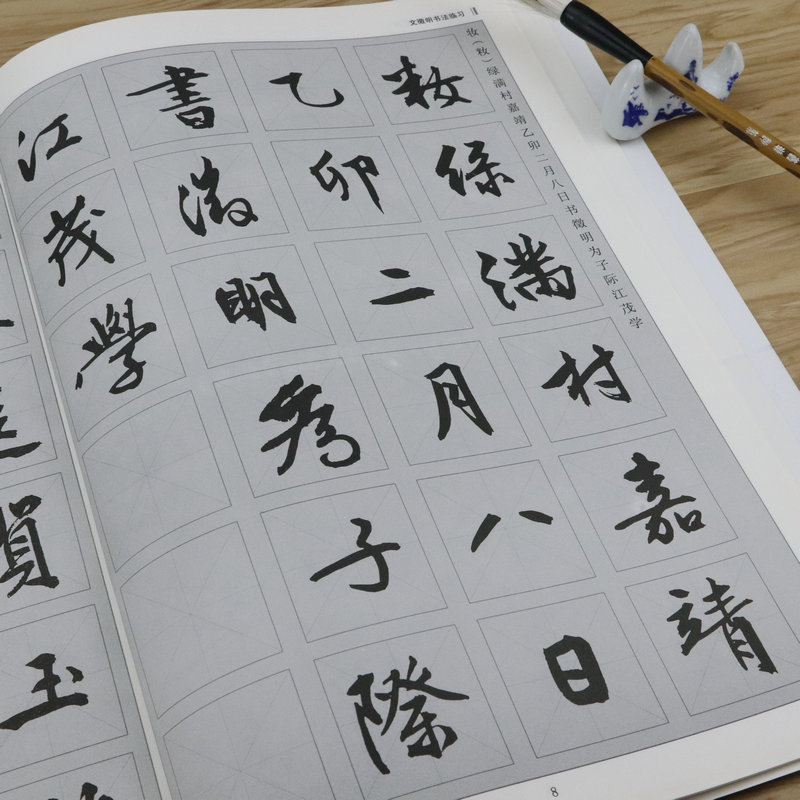 文徵明书法练习
妆（籹）绿满村嘉靖乙卯二月八日书徵明为子际江茂学
籹綠滿村嘉靖
乙卯二月八日
書徵明為子際
江茂學
玉
8